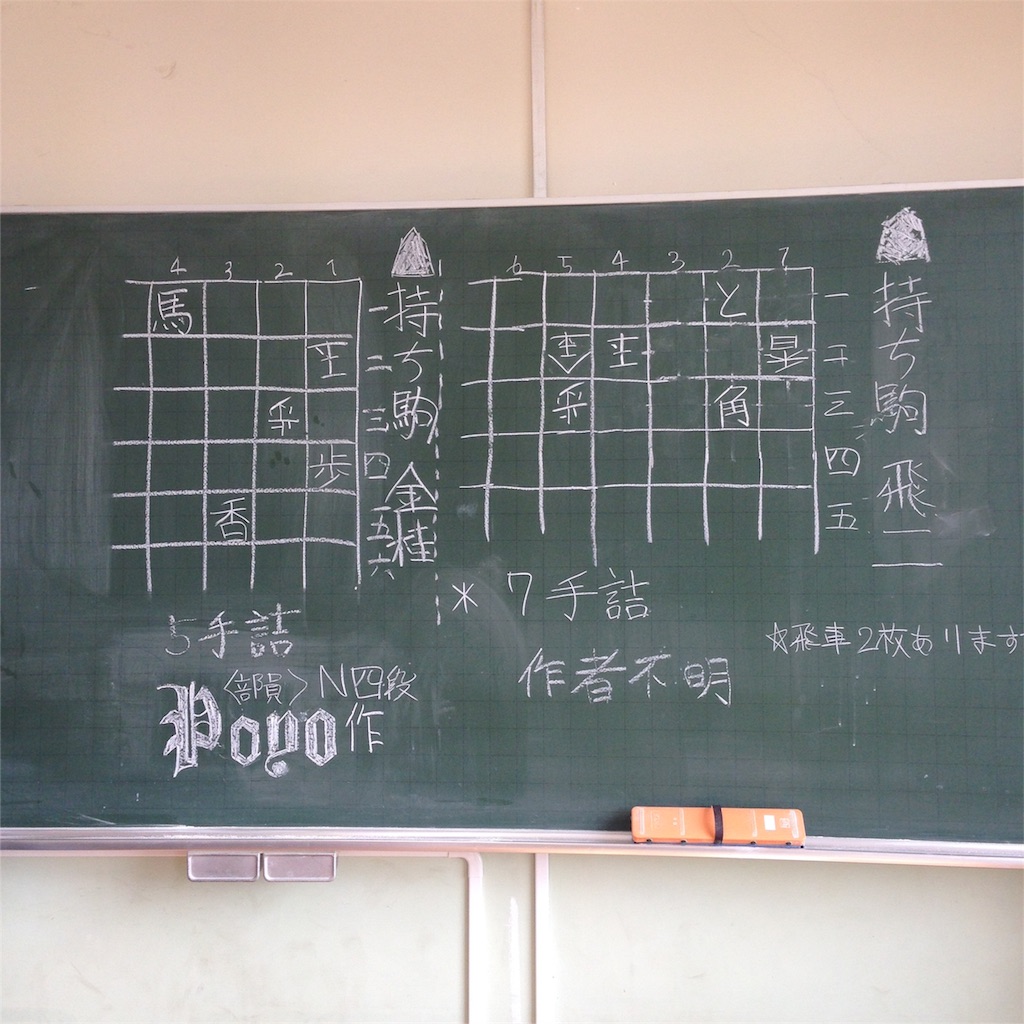 4 3 2 1
馬
歩
香
一
二
三
四
五
六
持ち駒 金桂
5手詰
〈部員〉N四段
Poyo作
6 5 4 3 2 1
と
角
一
二
三
四
五
持ち駒 飛一
* 7手詰
作者不明
☆飛車2枚あります